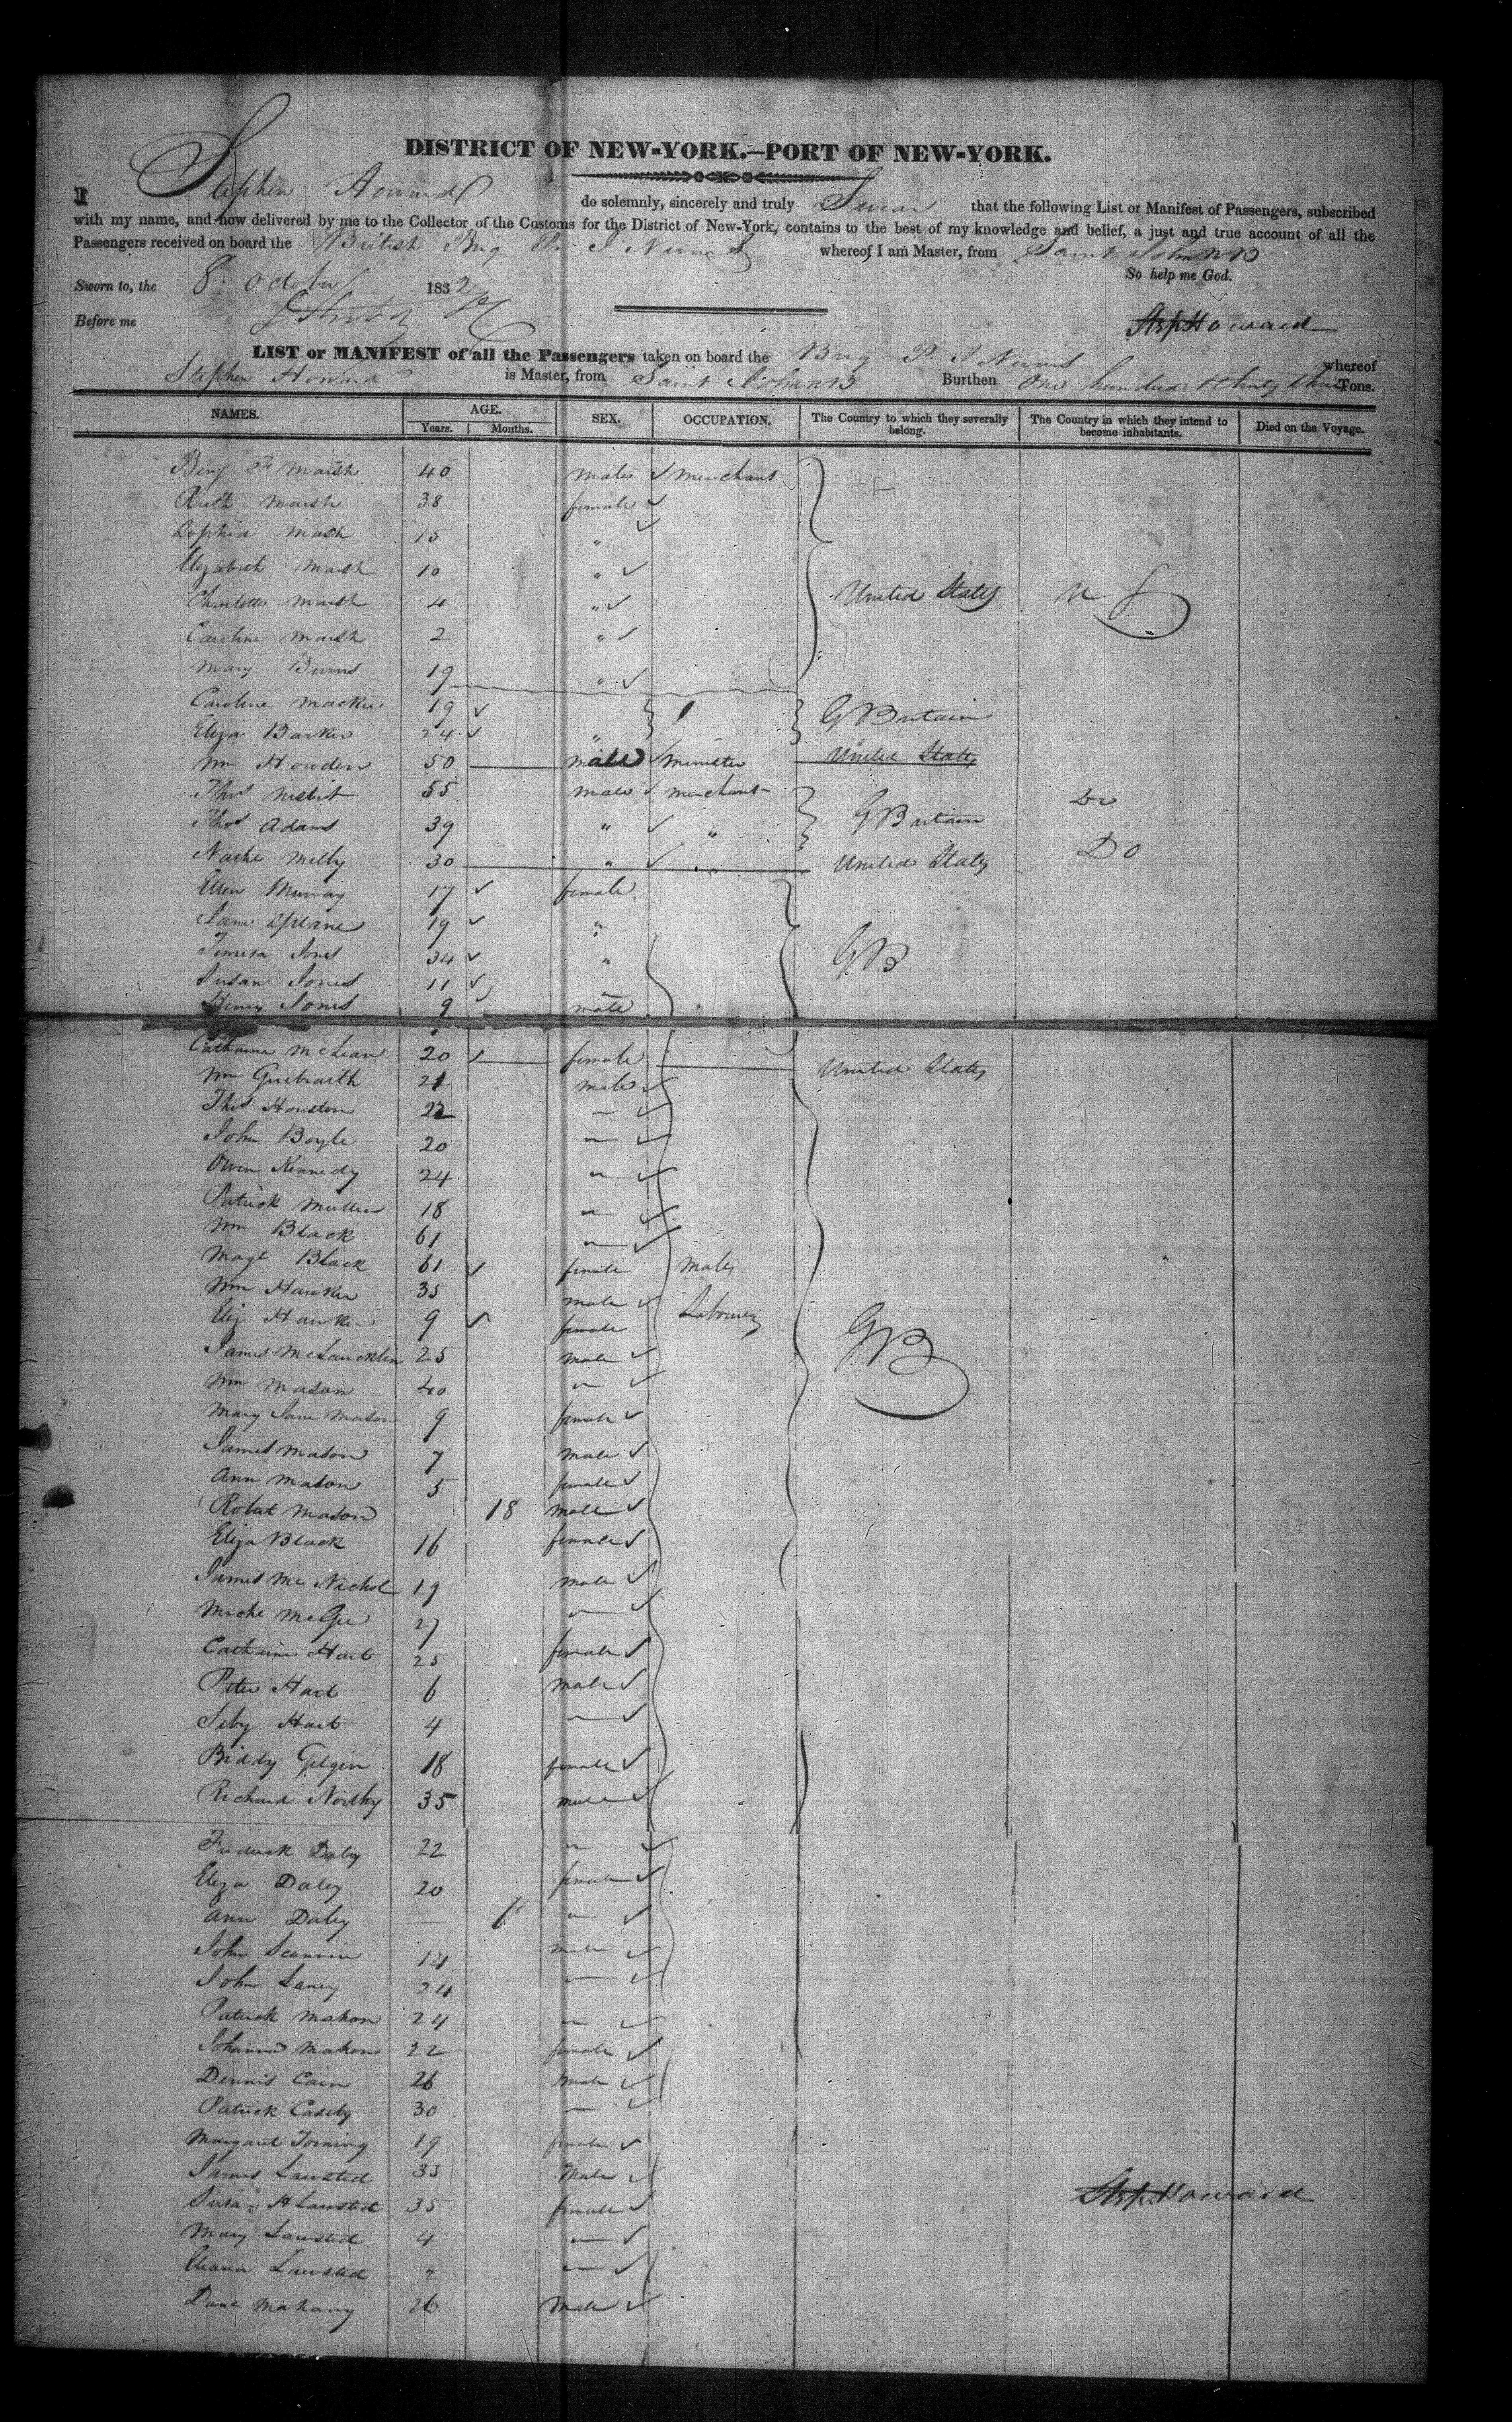 DISTRICT OF NEW-YORK.—PORT OF NEW-YORK.
I Stephen Howard do solemnly, sincerely and truly Swear that the following List or Manifest of Passengers, subscribed
with my name, and now delivered by me to the Collector of the Customs for the District of New-York, contains to the best of my knowledge and belief, a just and true account of all the
Passengers received on board the British Brig P. I. Nevins whereof I am Master, from Saint John NB
So help me God.
Sworn to, the 8 October 1832
Before me
Stepn Howard
LIST or MANIFEST of all the Passengers taken on board the Brig P. I Nevins whereof
Stephen Howard is Master, from Saint John NB Burthen One hundred & thirty three Tons.
NAMES. AGE. SEX. OCCUPATION. The Country to which they severally belong. The Country in which they intend to become inhabitants. Died on the Voyage.
Years. Months.
Benj F Marsh 40 male merchant
Ruth Marsh 38 female
Sophia Marsh 15 "
Elizabeth Marsh 10 "
Charlotte Marsh 4 " United States U S
Caroline Marsh 2 "
Mary Burns 19 "
Caroline Mackie 19 G Britain
Eliza Barker 24 "
Wm Howden 50 male minister United States
Thos Nisbit 55 male merchant Do
Thos Adams 39 " " G Britain
Milby 30 " " United States Do
Ellen Murray 17 female
Jane 19 "
Jones 34 " GB
Susan Jones 11
Henry Jones 9 male
Catharine McLean 20 female United States
Wm Guibraith 21 male
Thos Houston 22 "
John Boyle 20 "
Owen Kennedy 24 "
Patrick Mullin 18 "
Wm Black 61 "
Magt Black 61 female males
Wm Hawker 35 male
Eliz Hawker 9 female Labourers GB
James McLaucklin 25 male
Wm Mason 40 "
Mary Jane Mason 9 female
James Mason 7 male
Ann Mason 5 female
Robert Mason 18 male
Eliza Black 16 female
James McNichol 19 male
Miche McGee 27 "
Catharine Hart 25 female
Peter Hart 6 male
Hart 4 "
Biddy Gilgin 18 female
Richard Northy 35 male
Frederick Daley 22 "
Eliza Daley 20 female
Ann Daley — 6 "
John 14 male
John Laney 24 "
Patrick Mahon 24 "
Johanna Mahon 22 female
Dennis Cain 26 male
Patrick Casely 30 "
Margaret 19 female
James Lawsted 35 male
Susan H Lawsted 35 female Stepn Howard
Mary Lawsted 4 "
Lawsted "
Mahany 26 male